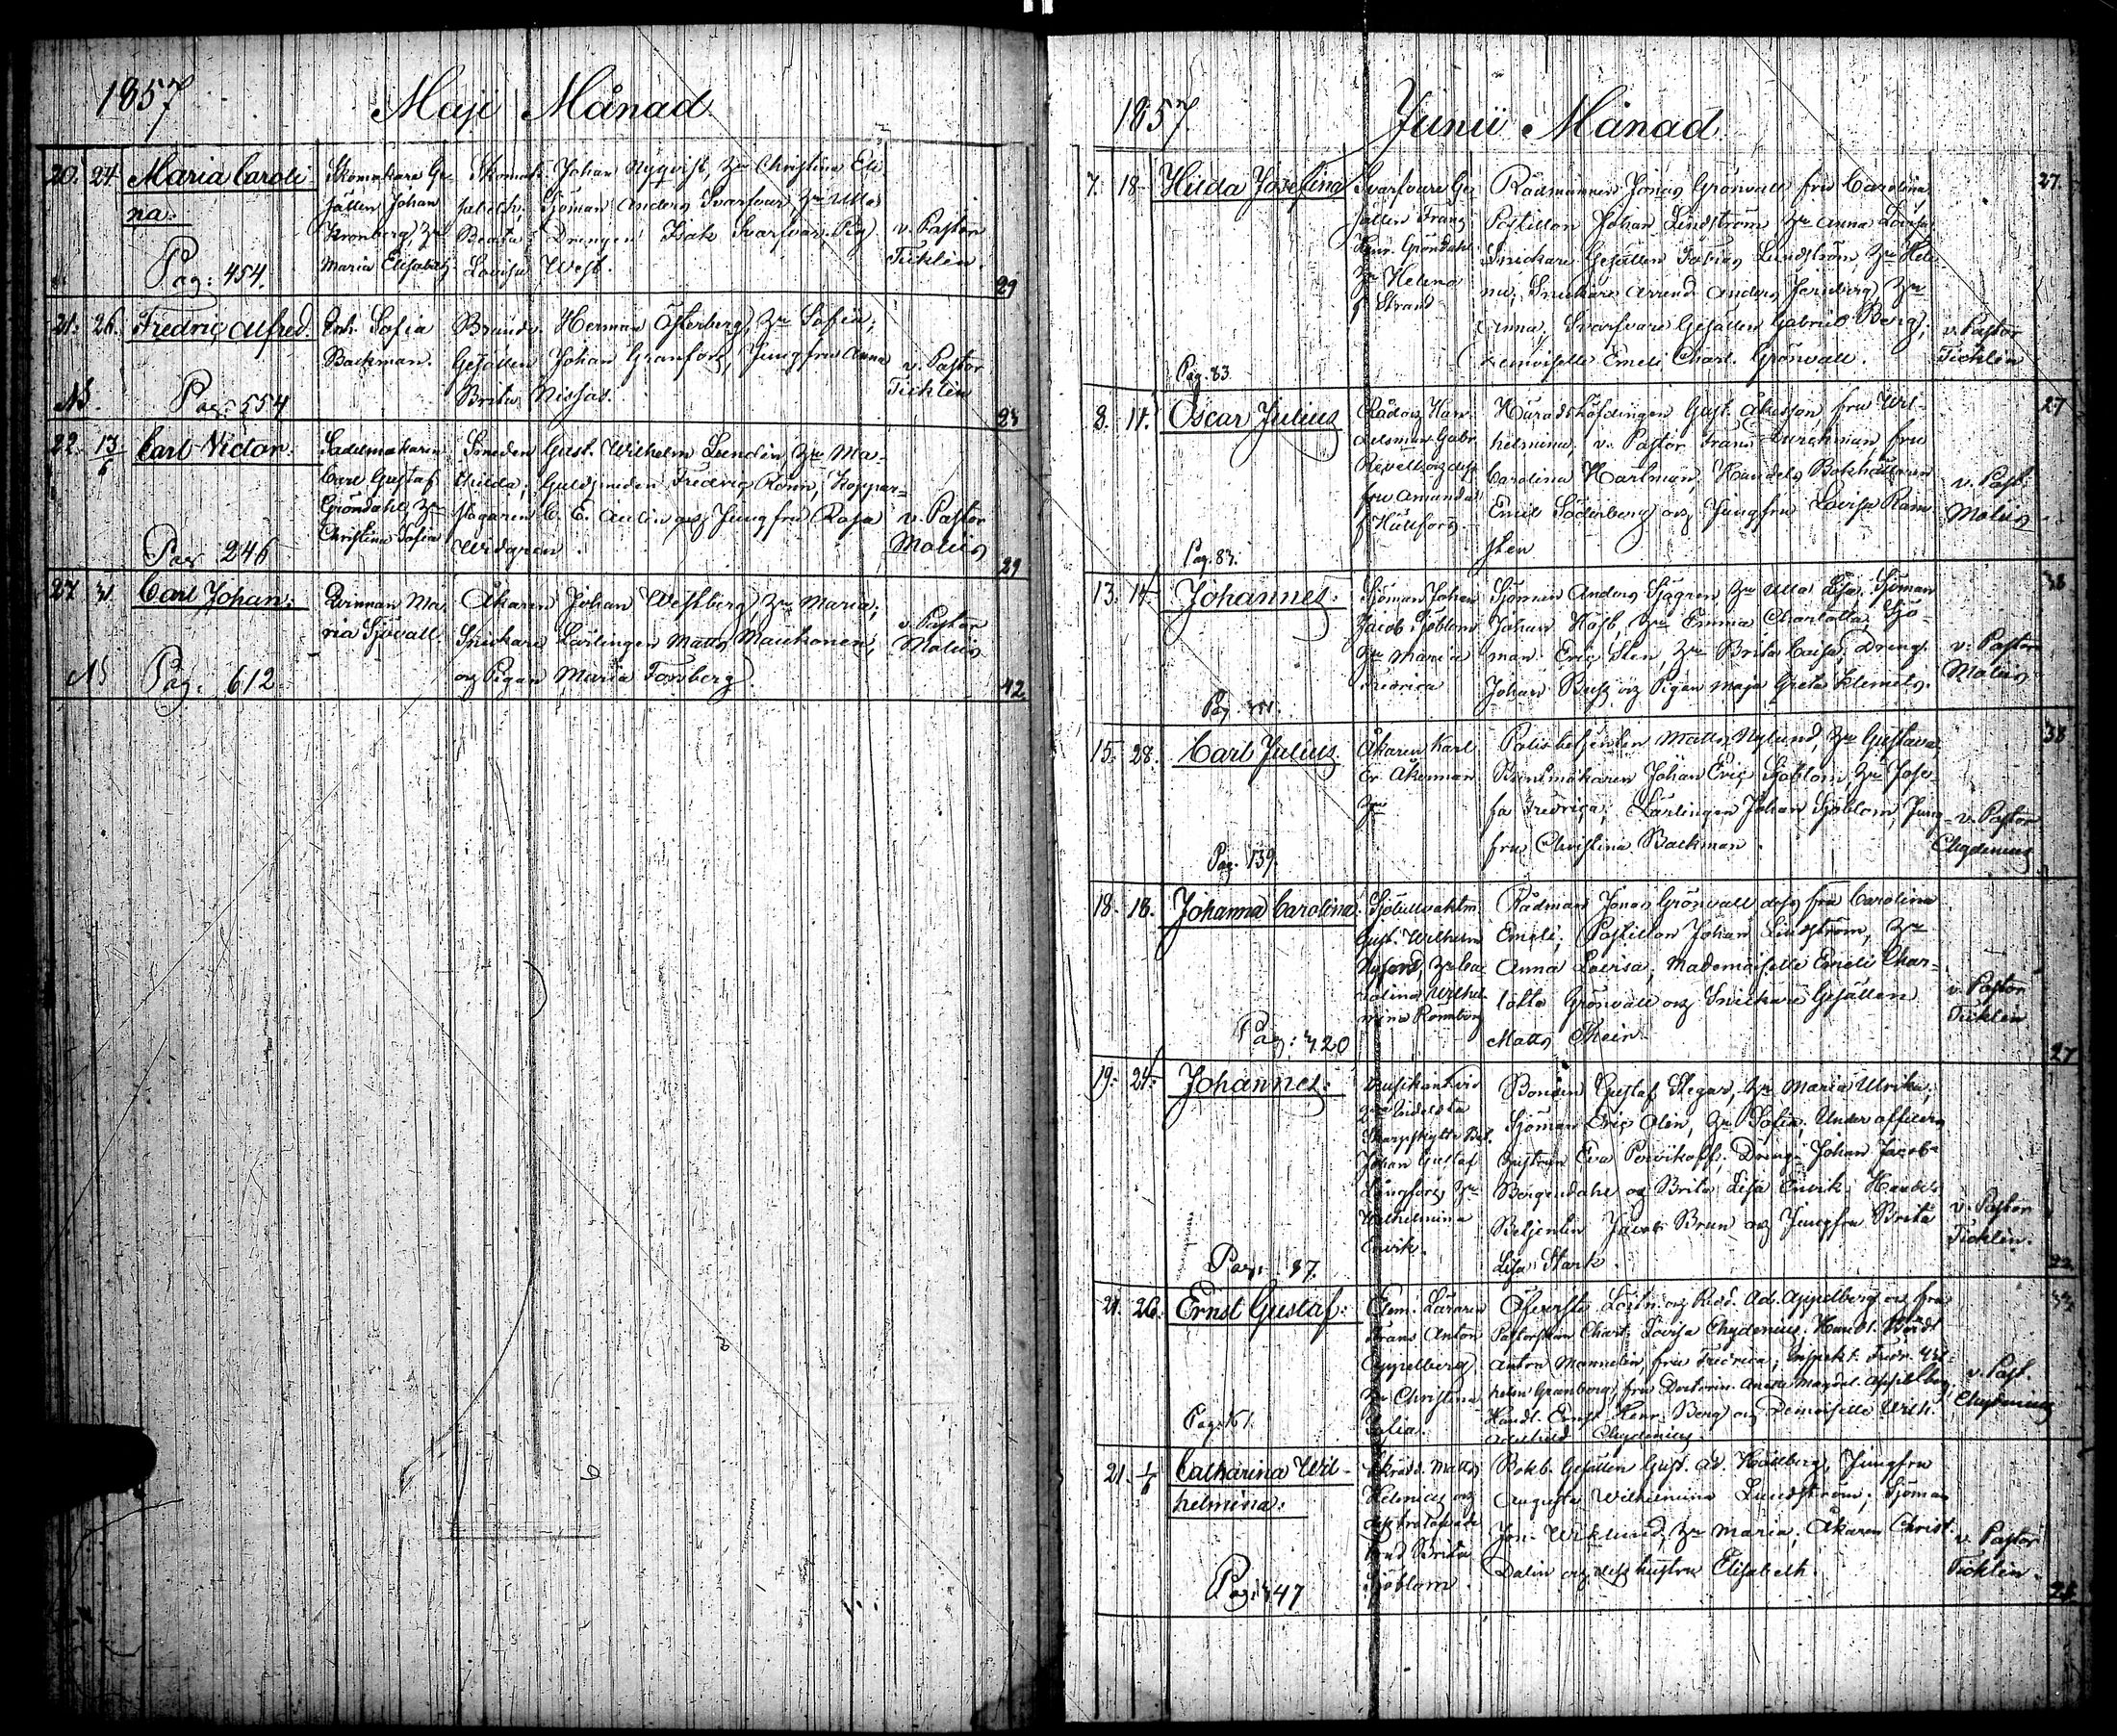 1857 Maji Månad
20. 24 Maria Caroli
na:
Pag: 454.
Skomakare Ge-
sällen Johan
Kronberg, H:u
Maria Elisabeth
Skomak. Johan Nyqvist, H:u Christina Eli
Sjöman Anders Svarfvar, H:u Ulla
Beata; Drengen Isak Svarfvar, Pig
Lovisa West.
v. Pastor
Ticklén.
29
21. 26. Fredric Alfred.
Pag: 554
Sofia
Backman.
Herman Österberg, H:u Sofia;
Gesällen Johan Granfors, Jungfru Anna
Brita Nissas.
v. Pastor
Ticklén
23
22. 13/6 Carl Victor.
Pag 246
Sadelmakaren
Carl Gustaf
Gröndahl, H:u
Christina Sofia
Smeden Gust. Wilhelm Lundin, H:u Ma-
thilda; Guldsmeden Fredric Rönn, Koppar-
slagaren C. E. Aulin och Jungfru Rosa
Widgren.
v. Pastor
Molius
29
27. 31. Carl Johan:
Pag: 612
Qvinnan Ma
ria Sjövall
Åkaren Johan Westberg, H:u Maria;
Snickare Lärlingen Matts Maukonen,
och Pigan Maria Forsberg.
v. Pastor
Molius
42
1857 Junii Månad
7. 18 Hilda Josefina
Pag. 83
Svarfvare Ge
sällen Franz
Henr. Gröndahl
H:u Helena
f. Strand
Rådmannen Jonas Grönvall fru Carolina,
Postillon Johan Lindström, H:u Anna Lovisa;
Snickare Gesällen Tobias Lundström, H:u Hele
na; Snickare Anders Jernberg, H:u
Anna; Svarfvare Gesällen Gabriel Berg,
Demoiselle Emeli Charl. Grönvall.
v. Pastor
Ticklén
27.
8. 11. Oscar Julius
Pag. 83.
Rådm. och Han
delsman Gabr.
Revell och dess
fru Amanda
f. Hällfors.
Häradshöfdingen Gust. Åkesson, fru Wil-
helmina; v. Pastor Frans Durchman, fru
Carolina Hartman; Handels Bokhållaren
Emil Söderberg och Jungfru Lovisa Ram
sten
v. Past.
Molius
27
13. 14. Johannes:
Sjöman Johan
Jacob Sjöblom
H:u Maria
Fredrica
Sjöman Anders Sjögren, H:u Ulla Lisa, Sjöman
Johan Häst, H:u Emma Charlotta, Sjö-
man Eric Sten, H:u Brita Caisa, Dreng.
Johan Buss och Pigan Maja Greta Klemets.
v: Pastor
Molius
38
15. 28. Carl Julius
Pag. 139.
Åkaren Karl
Er. Åkerman
H:u
Polis betjenten Matts Nylund, H:u Gustava;
Johan Eric Sjöblom, H:u Jose-
fa Fredrica; Lärlingen Johan Sjöblom, Jung-
fru Christina Backman.
v. Pastor
Chydenius
38
18. 18. Johanna Carolina
Pag: 420
Sjötullvaktm.
Gust. Wilhelm
Nyfors, H:u Ca
rolina Wilhel
mina Ronnberg
Rådman Jonas Grönvall dess fru Carolina
Emeli; Postillon Johan Lindström, H:u
Anna Lovisa; Mademoiselle Emeli Char-
lotta Grönvall och Snickare Gesällen
Matts Thein.
v. Pastor
Ticklén
27
19. 24. Johannes:
Pag: 87.
Musikant vid
Skarpskytte Bat.
Johan Gustaf
Långfors, H:u
Wilhelmina
Envik.
Bonden Gustaf Stegar, H:u Maria Ulrika;
Sjöman Eric Olin, H:u Sofia; Underofficers
hustrun Eva Dreng. Johan Jacob
Bergendahl och Brita Lisa Envik. Handels
Betjenten Jacob Brun och Jungfru Brita
Lisa Stark.
v. Pastor
Ticklén.
22
21. 26. Ernst Gustaf:
Elem. Läraren
Frans Anton
Appelberg
H:u Christina
Julia.
Öfverste Löjtn. och Ridd. Ad. Appelberg och fru
Pastorskan Charl. Lovisa Chydenius. Handl.
Anton Mannelin, fru Fredrica; Inspekt. Fredr. Wil-
helm Granberg, fru Doctorin. Anna Magdal. Appelberg,
Handl. Ernst Henr. Berg och Demoiselle Wilh.
Adelheid Chydenius.
v. Past.
Chydenius
21. 1/6 Catharina Wil-
helmina:
Pag: 447
Skradd. Matts
Helenius och
Brita
Sjöblom.
Bokb. Gesällen Gust. Ad. Hällberg, Jungfru
Augusta Wilhelmina Lundström; Sjöman
Jon. Wiklund, H:u Maria; Åkaren Christ.
Dalin och dess hustru Elisabeth.
v. Pastor
Ticklén.